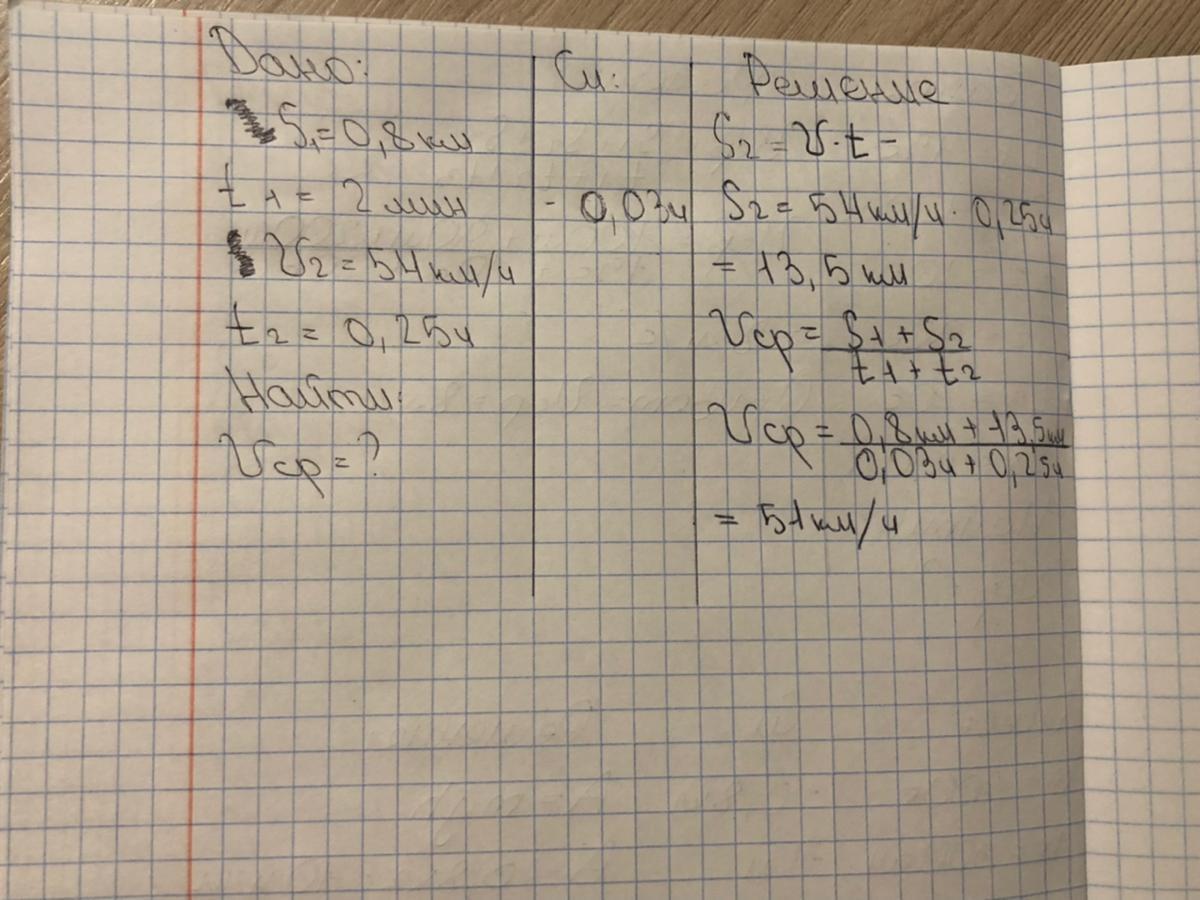 Дано:
S₁=0,8км
t₁= 2 мин
V₂=54км/ч
t₂= 0,25ч
Найти:
Vср=?
Си:
- 0,03ч
Решение
S₂=V·t=
S₂=54км/ч·0,25ч
= 13,5 км
Vср= S₁+S₂
t₁+t₂
Vср= 0,8км+13,5км
0,03ч+0,25ч
= 51км/ч